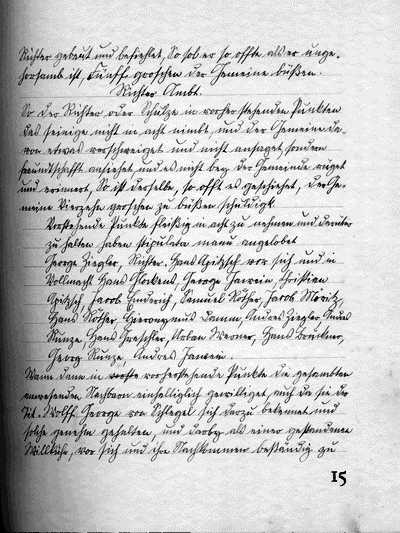 Richter gebeut und befiehlet, So sol er so offte als er unge-
horsamb ist, Fünff groschen der Gemeine büßen.
Richter Ambt.
So der Richter oder Schultze in vorher stehenden Punkten
das seinige nicht in acht nimbt, und der Gemeine da-
von etwas verschweiget und nicht ansaget sondern
freundtschafft ansiehet, und es nicht bey der Gemeinde rüget
und erinnert, So ist derselbe, so offt es geschiehet, der Ge-
meine Vierzehn groschen zu büßen schuldigk.
Vorstehende Punkte fleißig in acht zu nehmen und darüber
zu halten haben stipulata manu angelobet
George Ziegler, Richter. Hans Apitzsch vor sich und in
Vollmacht Hans George Christian
Apitzsch, Jacob Samuel Röther, Jacob Moritz,
Hans Röther Hieronymus Damm, Andres Ziegler Hans
Kunze Hans Urban Werner, Hans Brückner,
Georg Kunze, Andres
Wann dann in vorherstehende Punkte die gesambten
anwesenden Nachbarn einhelliglich gewilliget, auch da sie der
Tit. Wolff George von Schlegel sich darzu bekennet und
solche genehm gehalten, und darbey als einer gestandenen
Willkühr, vor sich und ihre Nachkommen beständig zu
15